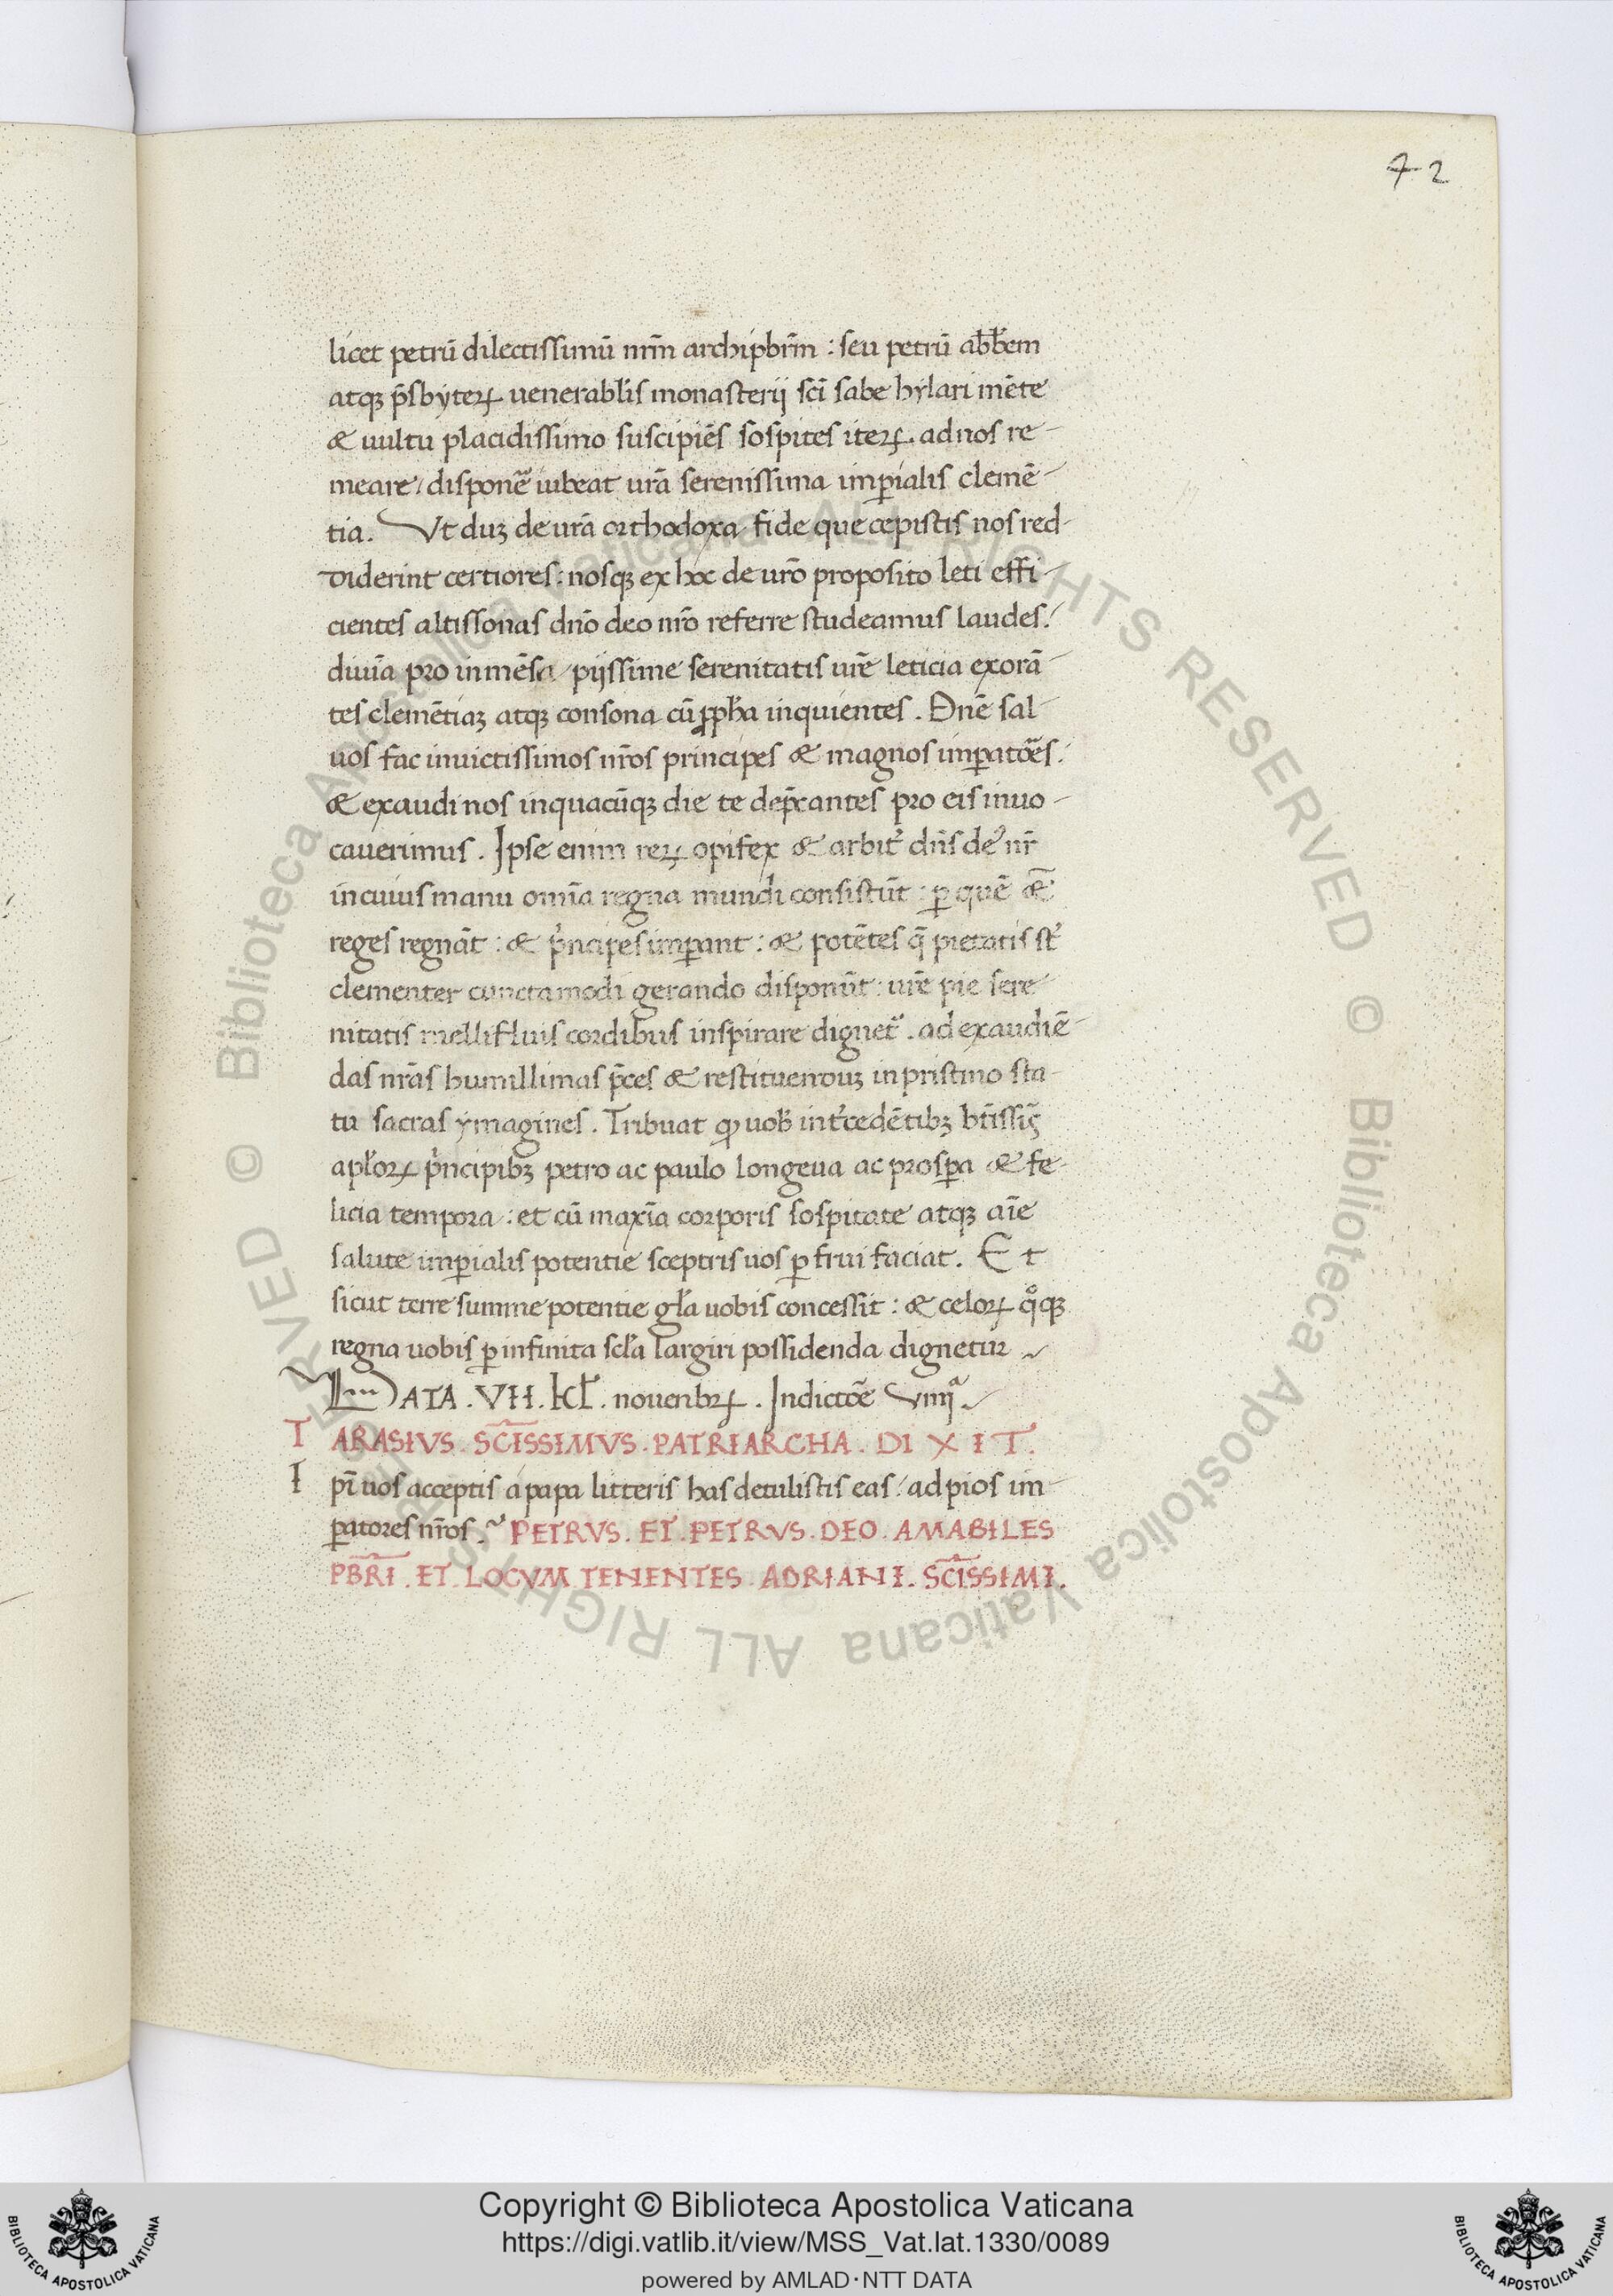 72
licet petrū dilectissimū nr̄m archip̄brm̄ : seu petrū ab̄b̄em
atqꝫ p̄sbyterꝝ uenerabl̄is monasterij sc̄i sabe hylari mēte
& uultu placidissimo suscipiēs sospites iterꝝ. ad nos re-
meare / disponē iubeat ur̄a serenissima imꝑialis clemē-
tia. Vt duꝫ de ur̄a orthodoxa fide que cepistis nos red-
diderint certiores : nosqꝫ ex hoc de ur̄o proposito leti effi-
cientes altissonas dn̄o deo nr̄o referre studeamus laudes:
diuīa pro inmēsa pijssime serenitatis ur̄e leticia exorā-
tes clemētiaꝫ atqꝫ consona cū ꝓpha inquientes. Dn̄e sal-
uos fac inuictissimos nr̄os principes & magnos imꝑatoēs:
& exaudi nos in quacūqꝫ die te dep̄cantes pro eis inuo-
cauerimus. Ipse enim rerꝝ opifex & arbit̄ dn̄s de' nr̄
in cuius manu om̄ia regna mundi consistūt : ꝑ quē &̄
reges regnāt : & p'ncipes imꝑant : & potētes q̄ pietatis st̄
clementer cuncta modi gerando disponūt : ur̄e pie sere
nitatis mellifluis cordibus inspirare dignet'. ad exaudiē-
das nr̄as humillimas p̄ces & restituenduꝫ in pristino sta-
tu sacras ymagines. Tribuat qꝫ uob̄ int'cedētibꝫ bt̄issiꝫ
apl̄orꝝ p'ncipibꝫ petro ac paulo longeua ac prosꝑa & fe-
licia tempora : et cū maxīa corporis sospitate atqꝫ aīe
salute imꝑialis potentie sceptris uos ꝑfrui faciat. Et
sicut terre summe potentie gl̄a uobis concessit : & celorꝝ qͦqꝫ
regna uobis ꝑ infinita scl̄a largiri possidenda dignetur ~
DATA. VII. kl̄. nouenbrꝝ. Indictōe Viiijᵃ.
TARASIVS. SC̄ISSIMVS. PATRIARCHA. DIXIT.
Ip̄i uos acceptis a papa litteris has detulistis eas / ad pios im-
ꝑatores nr̄os. ~ PETRVS. ET. PETRVS. DEO. AMABILES
PB̄RI. ET. LOCVM TENENTES ADRIANI. SC̄ISSIMI.
© Biblioteca Apostolica Vaticana ALL RIGHTS RESERVED © Biblioteca Apostolica Vaticana ALL RIGHTS RESERVED
BIBLIOTECA APOSTOLICA VATICANA
Copyright © Biblioteca Apostolica Vaticana
https://digi.vatlib.it/view/MSS_Vat.lat.1330/0089
powered by AMLAD·NTT DATA
BIBLIOTECA APOSTOLICA VATICANA